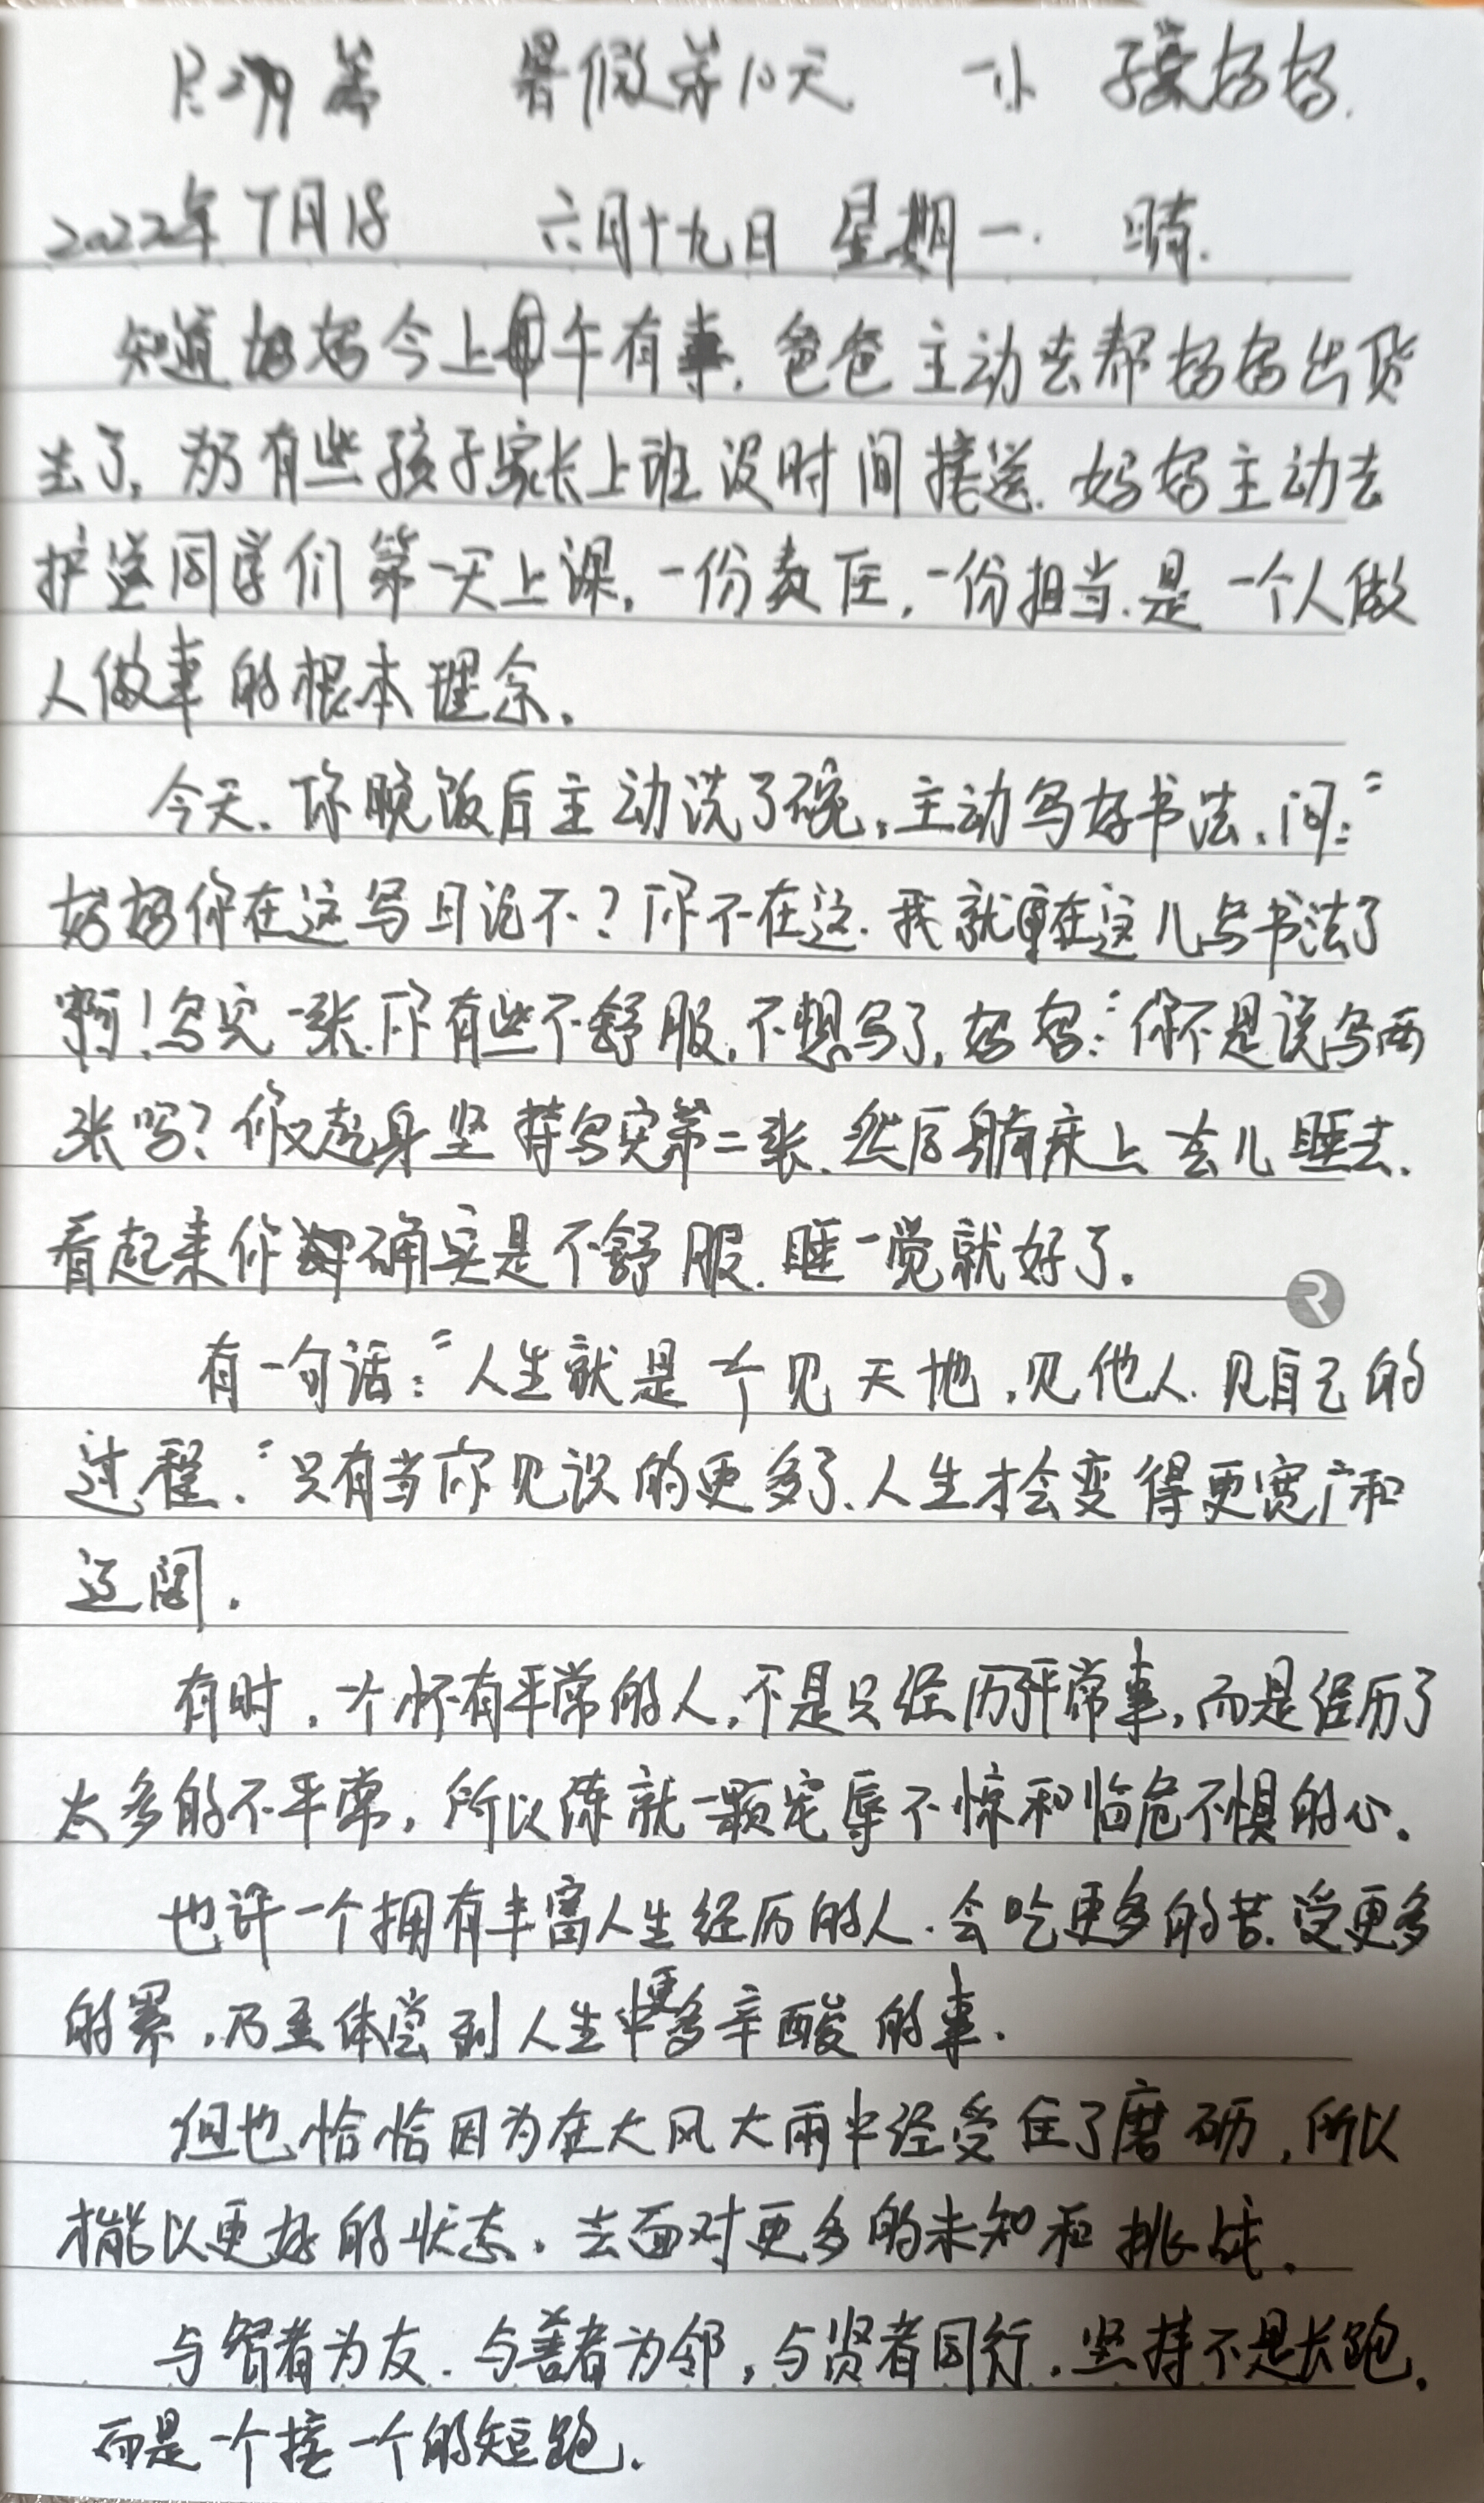 R299篇 暑假第10天 一小 子豪妈妈.
2022年7月18 六月十九日 星期一. 晴.
知道妈妈今上午有事,爸爸主动去帮妈妈出货
去了,为有些孩子家长上班没时间接送.妈妈主动去
护送同学们第一天上课,一份责任,一份担当.是一个人做
人做事的根本理念.
今天.你晚饭后主动洗了碗,主动写好书法,问:"
妈妈你在这写日记不?你不在这.我就在这儿写书法了
啊!写完一张.你有些不舒服,不想写了,妈妈:"你不是说写两
张吗?你又起身坚持写完第二张.然后躺床上去儿睡去.
看起来你确实是不舒服.睡一觉就好了.
有一句话:"人生就是一个见天地,见他人.见自己的
过程."只有当你见识的更多了、人生才会变得更宽广和
辽阔.
有时,一个怀有平常的人,不是只经历平常事,而是经历了
太多的不平常,所以练就一颗宠辱不惊和临危不惧的心.
也许一个拥有丰富人生经历的人.会吃更多的苦.受更多
的累,乃至体尝到人生中更多辛酸的事.
但也恰恰因为在大风大雨中经受住了磨砺,所以
才能以更好的状态.去面对更多的未知和挑战.
与智者为友.与善者为邻,与贤者同行.坚持不是长跑.
而是一个接一个的短跑.